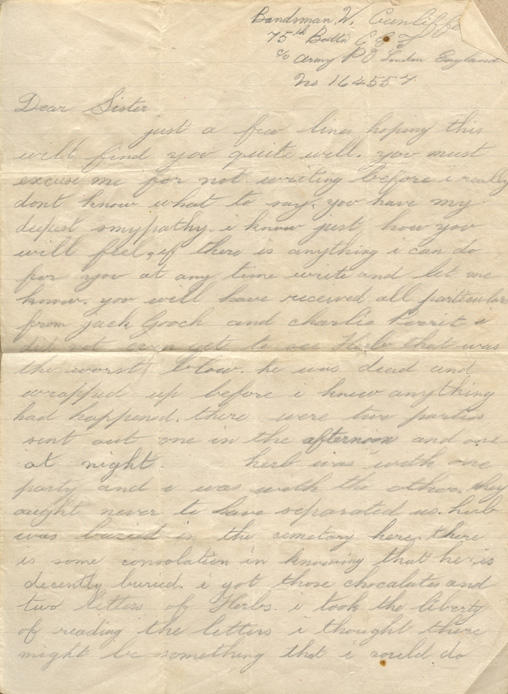 Bandsman W. Cunliffe
75th Battn C E F
c/o Army P O London England
No 164557
Dear Sister
just a few lines hoping this
will find you quite well. you must
excuse me for not writing before i really
dont know what to say. you have my
deepest smypathy. i know just how you
will feel, if there is anything i can do
for you at any time write and let me
know. you will have received all particulars
from Jack Gooch and charlie i
did not even get to see Herb that was
the worst blow. he was dead and
wrapped up before i knew anything
had happened. there were two parties
sent out one in the afternoon and one
at night. herb was with one
party and i was with the other. they
ought never to have separated us. herb
was buried in the cemetary here. there
is some consolation in knowing that he is
decently buried. i got those chocalates and
two letters of Herbs. i took the liberty
of reading the letters i thought there
might be something that i could do